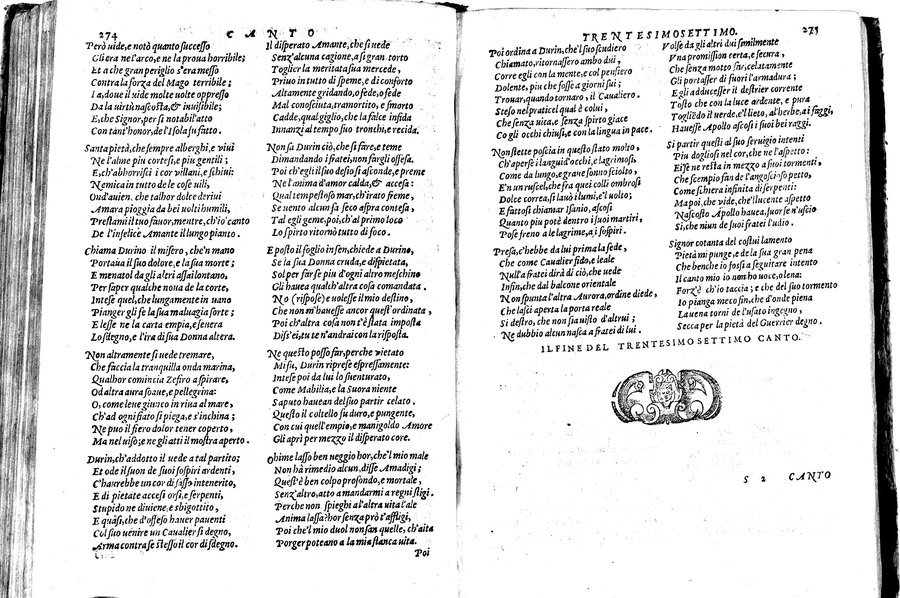 274
CANTO
Però uide, e notò quanto successo
Gli era nel'arco, e ne la proua horribile;
Et a che gran periglio s'era messo
Contra la forza del Mago terribile;
Là, doue il uide molte uolte oppresso
Da la uirtù nascosta, & inuisibile;
E, che Signor, per sì notabil'atto
Con tant'honor, de l'Isola fu fatto.
Santa pietà, che sempre alberghi, e uiui
Ne l'alme piu cortesi, e piu gentili;
E, ch'abborrisci i cor uillani, e schiui:
Nemica in tutto de le cose uili,
Ond'auien, che talhor dolce deriui
Amara pioggia da bei uolti humili,
Prestami il tuo fauor, mentre, ch'io canto
De l'infelice Amante il lungo pianto.
Chiama Durino il misero, che'n mano
Portaua il suo dolore, e la sua morte;
E menatol da gli altri assai lontano,
Per saper qualche noua de la corte,
Intese quel, che lungamente in uano
Pianger gli fe la sua maluagia sorte;
E lesse ne la carta empia, e seuera
Lo sdegno, e l'ira di sua Donna altera.
Non altramente si uede tremare,
Che faccia la tranquilla onda marina,
Qualhor comincia Zefiro a spirare,
Od altra aura soaue, e pellegrina:
O, come leue giunco in riua al mare,
Ch'ad ogni fiato si piega, e s'inchina;
Ne può il fiero dolor tener coperto,
Ma nel uiso; e ne gli atti il mostra aperto.
Durin, ch'addotto il uede a tal partito;
Et ode il suon de suoi sospiri ardenti,
C'haurebbe un cor di sasso intenerito,
E di pietate accesi orsi, e serpenti,
Stupido ne diuiene, e sbigottito,
E quasi, che d'offeso hauer pauenti
Col suo uenire un Caualier sì degno,
Arma contra se stesso il cor di sdegno.
Il disperato Amante, che si uede
Senz'alcuna cagione, a sì gran torto
Toglier la meritata sua mercede,
Priuo in tutto di speme, e di conforto
Altamente gridando, o fede, o fede
Mal conosciuta, tramortito, e smorto
Cadde, qual giglio, che la falce infida
Innanzi al tempo suo tronchi, e recida.
Non sa Durin ciò, che si fare, e teme
Dimandando i fratei, non far gli offesa.
Poi ch'egli il suo desio sì asconde, e preme
Ne l'anima d'amor calda, & accesa:
Qual tempestoso mar, ch'irato freme,
Se uento alcun fa seco aspra contesa,
Tal egli geme, poi, ch'al primo loco
Lo spirto ritornò tutto di foco.
E posto il foglio in sen, chiede a Durino,
Se la sua Donna cruda, e dispietata,
Sol per farse piu d'ogni altro meschino
Gli hauea qualch'altra cosa comandata.
No (rispose) e uolesse il mio destino,
Che non m'hauesse ancor quest'ordinata,
Poi ch'altra cosa non t'è stata imposta
Diss'ei, tu te n'andrai con la risposta.
Ne questo posso far, perche uietato
Mi fu, Durin riprese espressamente:
Intese poi da lui lo suenturato,
Come Mabilia, e la Suora niente
Saputo hauean del suo partir celato.
Questo il coltello fu duro, e pungente,
Con cui quell'empio, e manigoldo Amore
Gli aprì per mezzo il disperato core.
Ohime lasso ben ueggio hor, che'l mio male
Non hà rimedio alcun, disse Amadigi;
Quest'è ben colpo profondo, e mortale,
Senz'altro, atto a mandarmi a regni stigi.
Perche non spieghi al'altra uita l'ale
Anima lassa? hor senza prò t'affligi,
Poi che'l mio duol non san quelle, ch'aita
Porger poteano a la mia stanca uita.
Poi
TRENTESIMOSETTIMO.
275
Poi ordina a Durin, che'l suo scudiero
Chiamato, ritornassero ambo dui,
Corre egli con la mente, e col pensiero
Dolente, piu che fosse a giorni sui;
Trouar, quando tornaro, il Caualiero.
Steso nel pratice'l qual è colui,
Che senza uita, e senza spirto giace
Co gli occhi chiusi, e con la lingua in pace.
Non stette poscia in questo stato molto,
Ch'aperse i languid'occhi, e lagrimosi,
Come da lungo, e graue sonno sciolto,
E'n un ruscel, che fra quei colli ombrosi
Dolce correa, sì lauò i lumi, e'l uolto;
E fattosi chiamar Isanio, ascosi
Quanto piu potè dentro i suoi martiri,
Pose freno a le lagrime, a i sospiri.
Presa, c'hebbe da lui prima la fede,
Che come Caualier fido, e leale
Null'a fratei dirà di ciò, che uede
Infin, che dal balcone orientale
Non spunta l'altra Aurora, ordine diede,
Che lasci aperta la porta reale
Sì destro, che non sia uisto d'altrui;
Ne dubbio alcun nasca a fratei di lui.
Volse da gli altri dui similmente
Vna promission certa, e secura,
Che senza motto far, celatamente
Gli portasser di fuori l'armadura;
E gli adducesser il destrier corrente
Tosto che con la luce ardente, e pura
Togliedo il uerde, e'l lieto, al'herbe, a i faggi,
Hauesse Apollo ascosi i suoi bei raggi.
Si partir questi al suo seruigio intenti
Piu dogliosi nel cor, che ne l'aspetto:
Ei se ne resta in mezzo a suoi tormenti,
Che scempio fan de l'angoscioso petto,
Come schiera infinita di serpenti:
Ma poi, che uide, che'l lucente aspetto
Nascosto Apollo hauea, fuor se n'uscio
Sì, che niun de suoi fratei l'udio.
Signor cotanta del costui lamento
Pietà mi punge, e de la sua gran pena
Che benche io fossi a seguitare intento
Il canto mio io non ho uoce, o lena:
Forz'è ch'io taccia; e che del suo tormento
Io pianga meco sin, che d'onde piena
La uena torni de l'usato ingegno,
Secca per la pietà del Guerrier degno.
IL FINE DEL TRENTESIMOSETTIMO CANTO.
S 2 CANTO